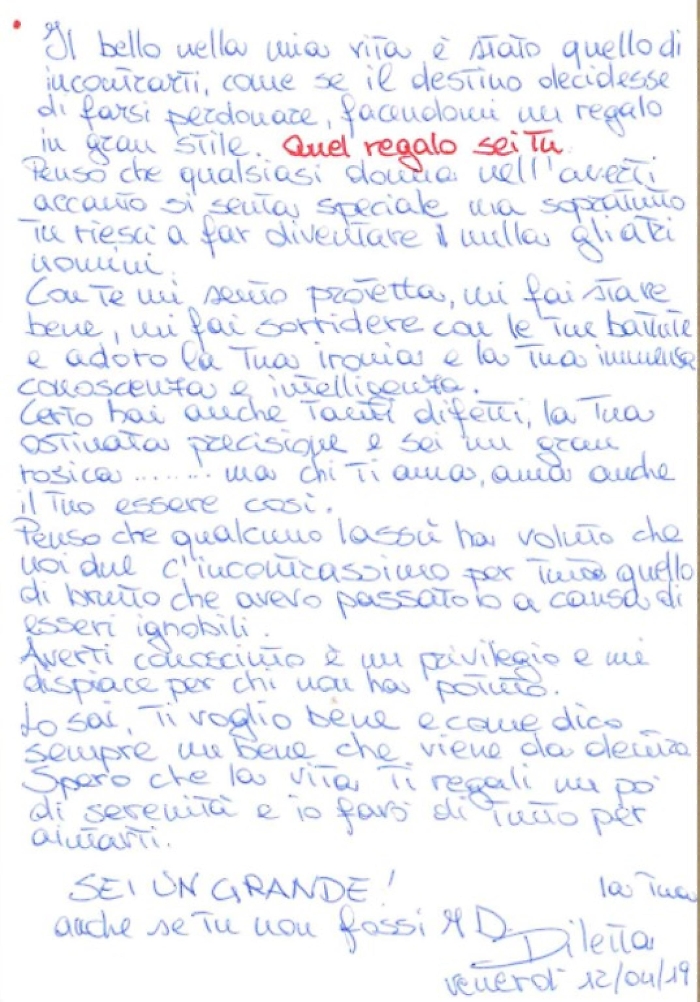 Il bello nella mia vita è stato quello di
incontrarti, come se il destino decidesse
di farsi perdonare, facendomi un regalo
in gran stile. Quel regalo sei Tu
Penso che qualsiasi donna nell'averti
accanto si senta speciale ma sopratutto
tu riesci a far diventare nulla gli altri
uomini.
Con Te mi sento protetta, mi fai stare
bene, mi fai sorridere con le Tue battute
e adoro la Tua ironia e la Tua immensa
conoscenza e intelligenza.
Certo hai anche Tanti difetti, la Tua
ostinata precisione e sei un gran
rosica ........ ma chi Ti ama, ama anche
il Tuo essere così.
Penso che qualcuno lassù ha voluto che
noi due c'incontrassimo per tutto quello
di brutto che avevo passato a causa di
esseri ignobili.
Averti conosciuto è un privilegio e mi
dispiace per chi non ha potuto.
Lo sai, Ti voglio bene e come dico
sempre un bene che viene da dentro
Spero che la vita Ti regali un po'
di serenità e io farò di tutto per
aiutarti.
SEI UN GRANDE!
la Tua
anche se Tu non fossi M D
Diletta
venerdì 12/04/19